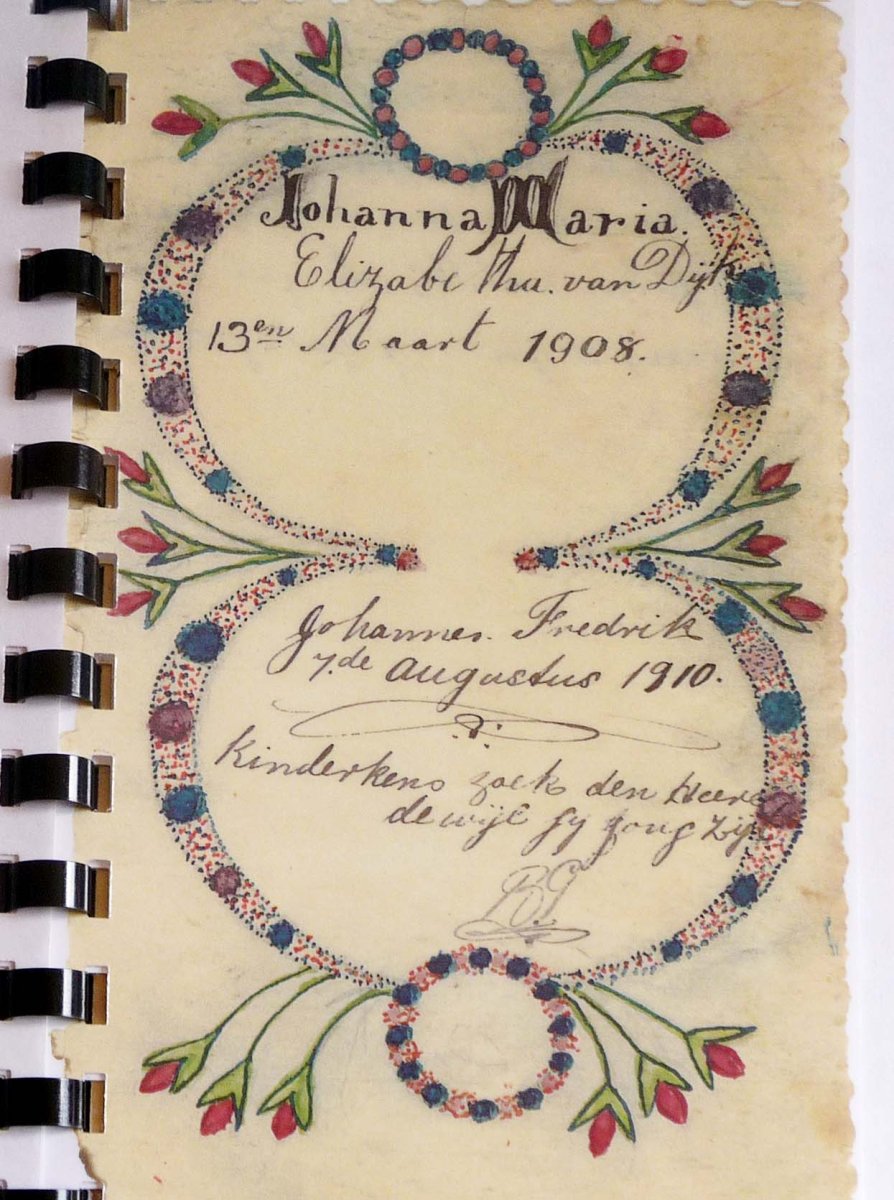 Johanna Maria.
Elizabetha. van Dijk
13en Maart 1908.
Johannes. Fredrik
7.de augustus 1910.
Kinderkens zoek den Heere
dewijl gy jong zijt